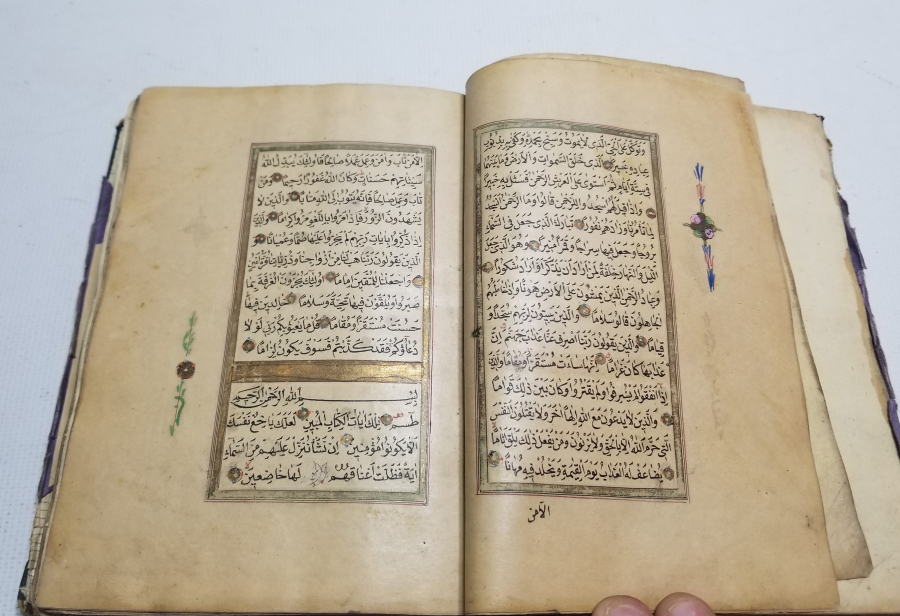 وتوكل على الحي الذي لا يموت وسبح بحمده وكفى به بذنوب
عباده خبيرا الذي خلق السموات والارض وما بينهما
في ستة ايام ثم استوى على العرش الرحمن فسئل به خبيرا
واذا قيل لهم اسجدوا للرحمن قالوا وما الرحمن انسجد
لما تأمرنا وزادهم نفورا تبارك الذي جعل في السماء
بروجا وجعل فيها سراجا وقمرا منيرا وهو الذي جعل
الليل والنهار خلفة لمن اراد ان يذكر او اراد شكورا
وعباد الرحمن الذين يمشون على الارض هونا واذا خاطبهم
الجاهلون قالوا سلاما والذين يبيتون لربهم سجدا و
قياما والذين يقولون ربنا اصرف عنا عذاب جهنم ان
عذابها كان غراما انها ساءت مستقرا ومقاما والذين
اذا انفقوا لم يسرفوا ولم يقتروا وكان بين ذلك قواما
والذين لا يدعون مع الله الها اخر ولا يقتلون النفس
التي حرم الله الا بالحق ولا يزنون ومن يفعل ذلك يلق اثاما
يضاعف له العذاب يوم القيمة ويخلد فيه مهانا
الا من
الا من تاب وامن وعمل عملا صالحا فاولئك يبدل الله
سيئاتهم حسنات وكان الله غفورا رحيما ومن
تاب وعمل صالحا فانه يتوب الى الله متابا والذين لا
يشهدون الزور واذا مروا باللغو مروا كراما والذين
اذا ذكروا بايات ربهم لم يخروا عليها صما وعميانا و
الذين يقولون ربنا هب لنا من ازواجنا وذرياتنا قرة اعين
واجعلنا للمتقين اماما اولئك يجزون الغرفة بما
صبروا ويلقون فيها تحية وسلاما خالدين فيها
حسنت مستقرا ومقاما قل ما يعبؤ بكم ربي لولا
دعاؤكم فقد كذبتم فسوف يكون لزاما
بسم الله الرحمن الرحيم
طسم تلك ايات الكتاب المبين لعلك باخع نفسك
الا يكونوا مؤمنين ان نشأ ننزل عليهم من السماء
اية فظلت اعناقهم لها خاضعين